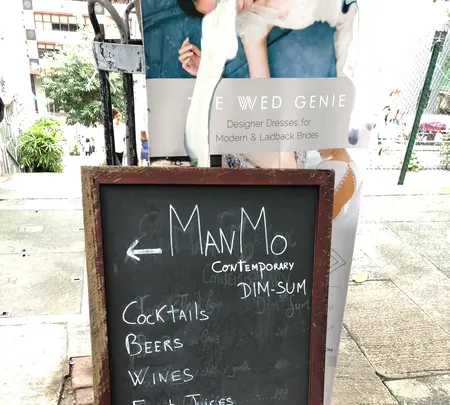 THE WED GENIE
Designer Dresses for
Modern & Ladback Brides
MANMO
CONTEMPORARY
DIM-SUM
COCKTAILS
BEERS
WINES
JUICES